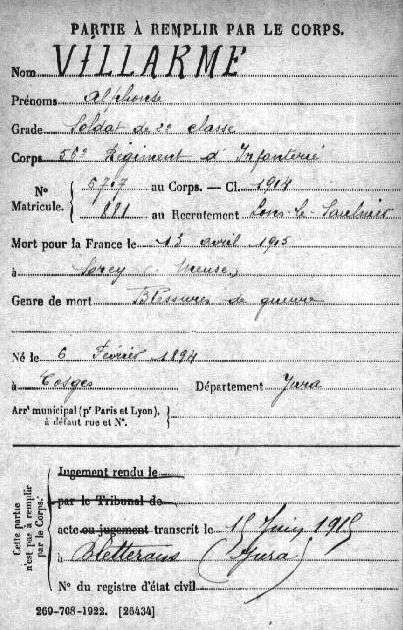 PARTIE À REMPLIR PAR LE CORPS.
Nom VILLARME
Prénoms Alphonse
Grade Soldat de 2e classe
Corps 56e Régiment d'Infanterie
N° Matricule. { 5717 au Corps. — Cl. 1914
881 au Recrutement Lons-le-Saulnier
Mort pour la France le 13 avril 1915
à Sorcy (Meuse)
Genre de mort Blessures de guerre
Né le 6 Février 1894
à Cosges Département Jura
Arrt municipal (pr Paris et Lyon), à défaut rue et N°.
Cette partie n'est pas à remplir par le Corps.
Jugement rendu le
par le Tribunal de
acte ou jugement transcrit le 15 Juin 1915
à Bletterans (Jura)
N° du registre d'état civil
269-708-1922. [26434]